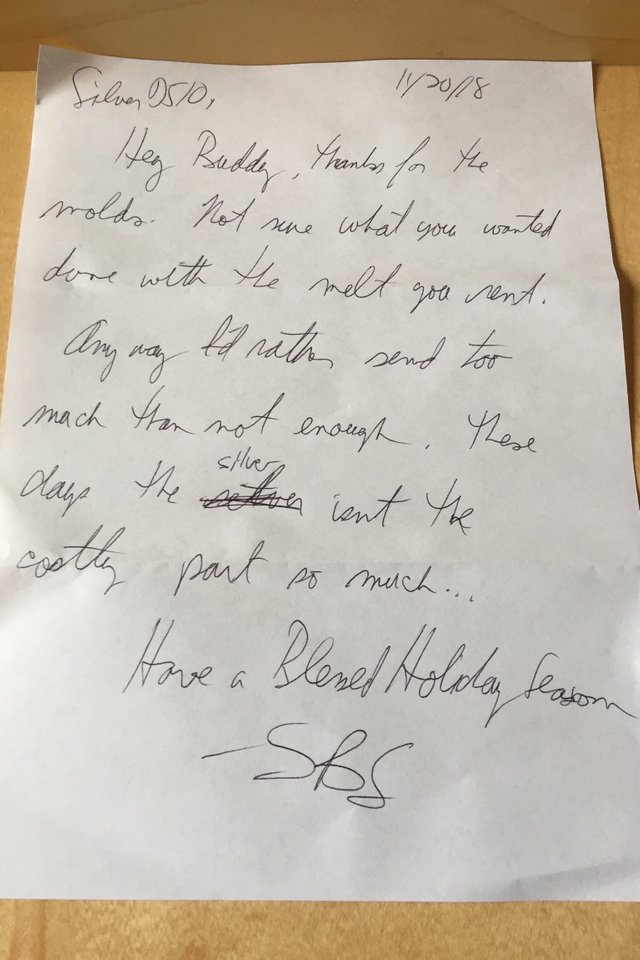 11/20/18
Silver DSID,
Hey Buddy, thanks for the
molds. Not sure what you wanted
done with the melt you sent.
Anyway I'd rather send too
much than not enough. These
silver
days the isn't the
costly part so much...
Have a Blessed Holiday Season
-SBS